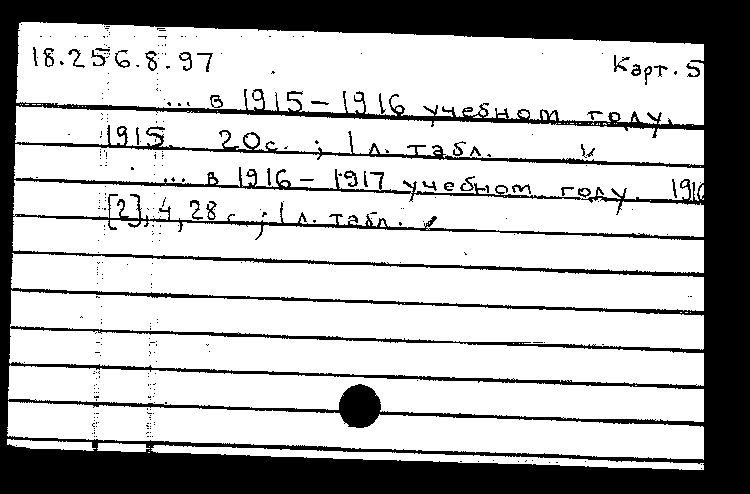 18.256.8.97 Карт. 5
... в 1915-1916 учебном году.
1915. 20с. ; 1 л. табл. v
... в 1916-1917 учебном году. 1916
[2], 4, 28 с. ; 1 л. табл. ✓